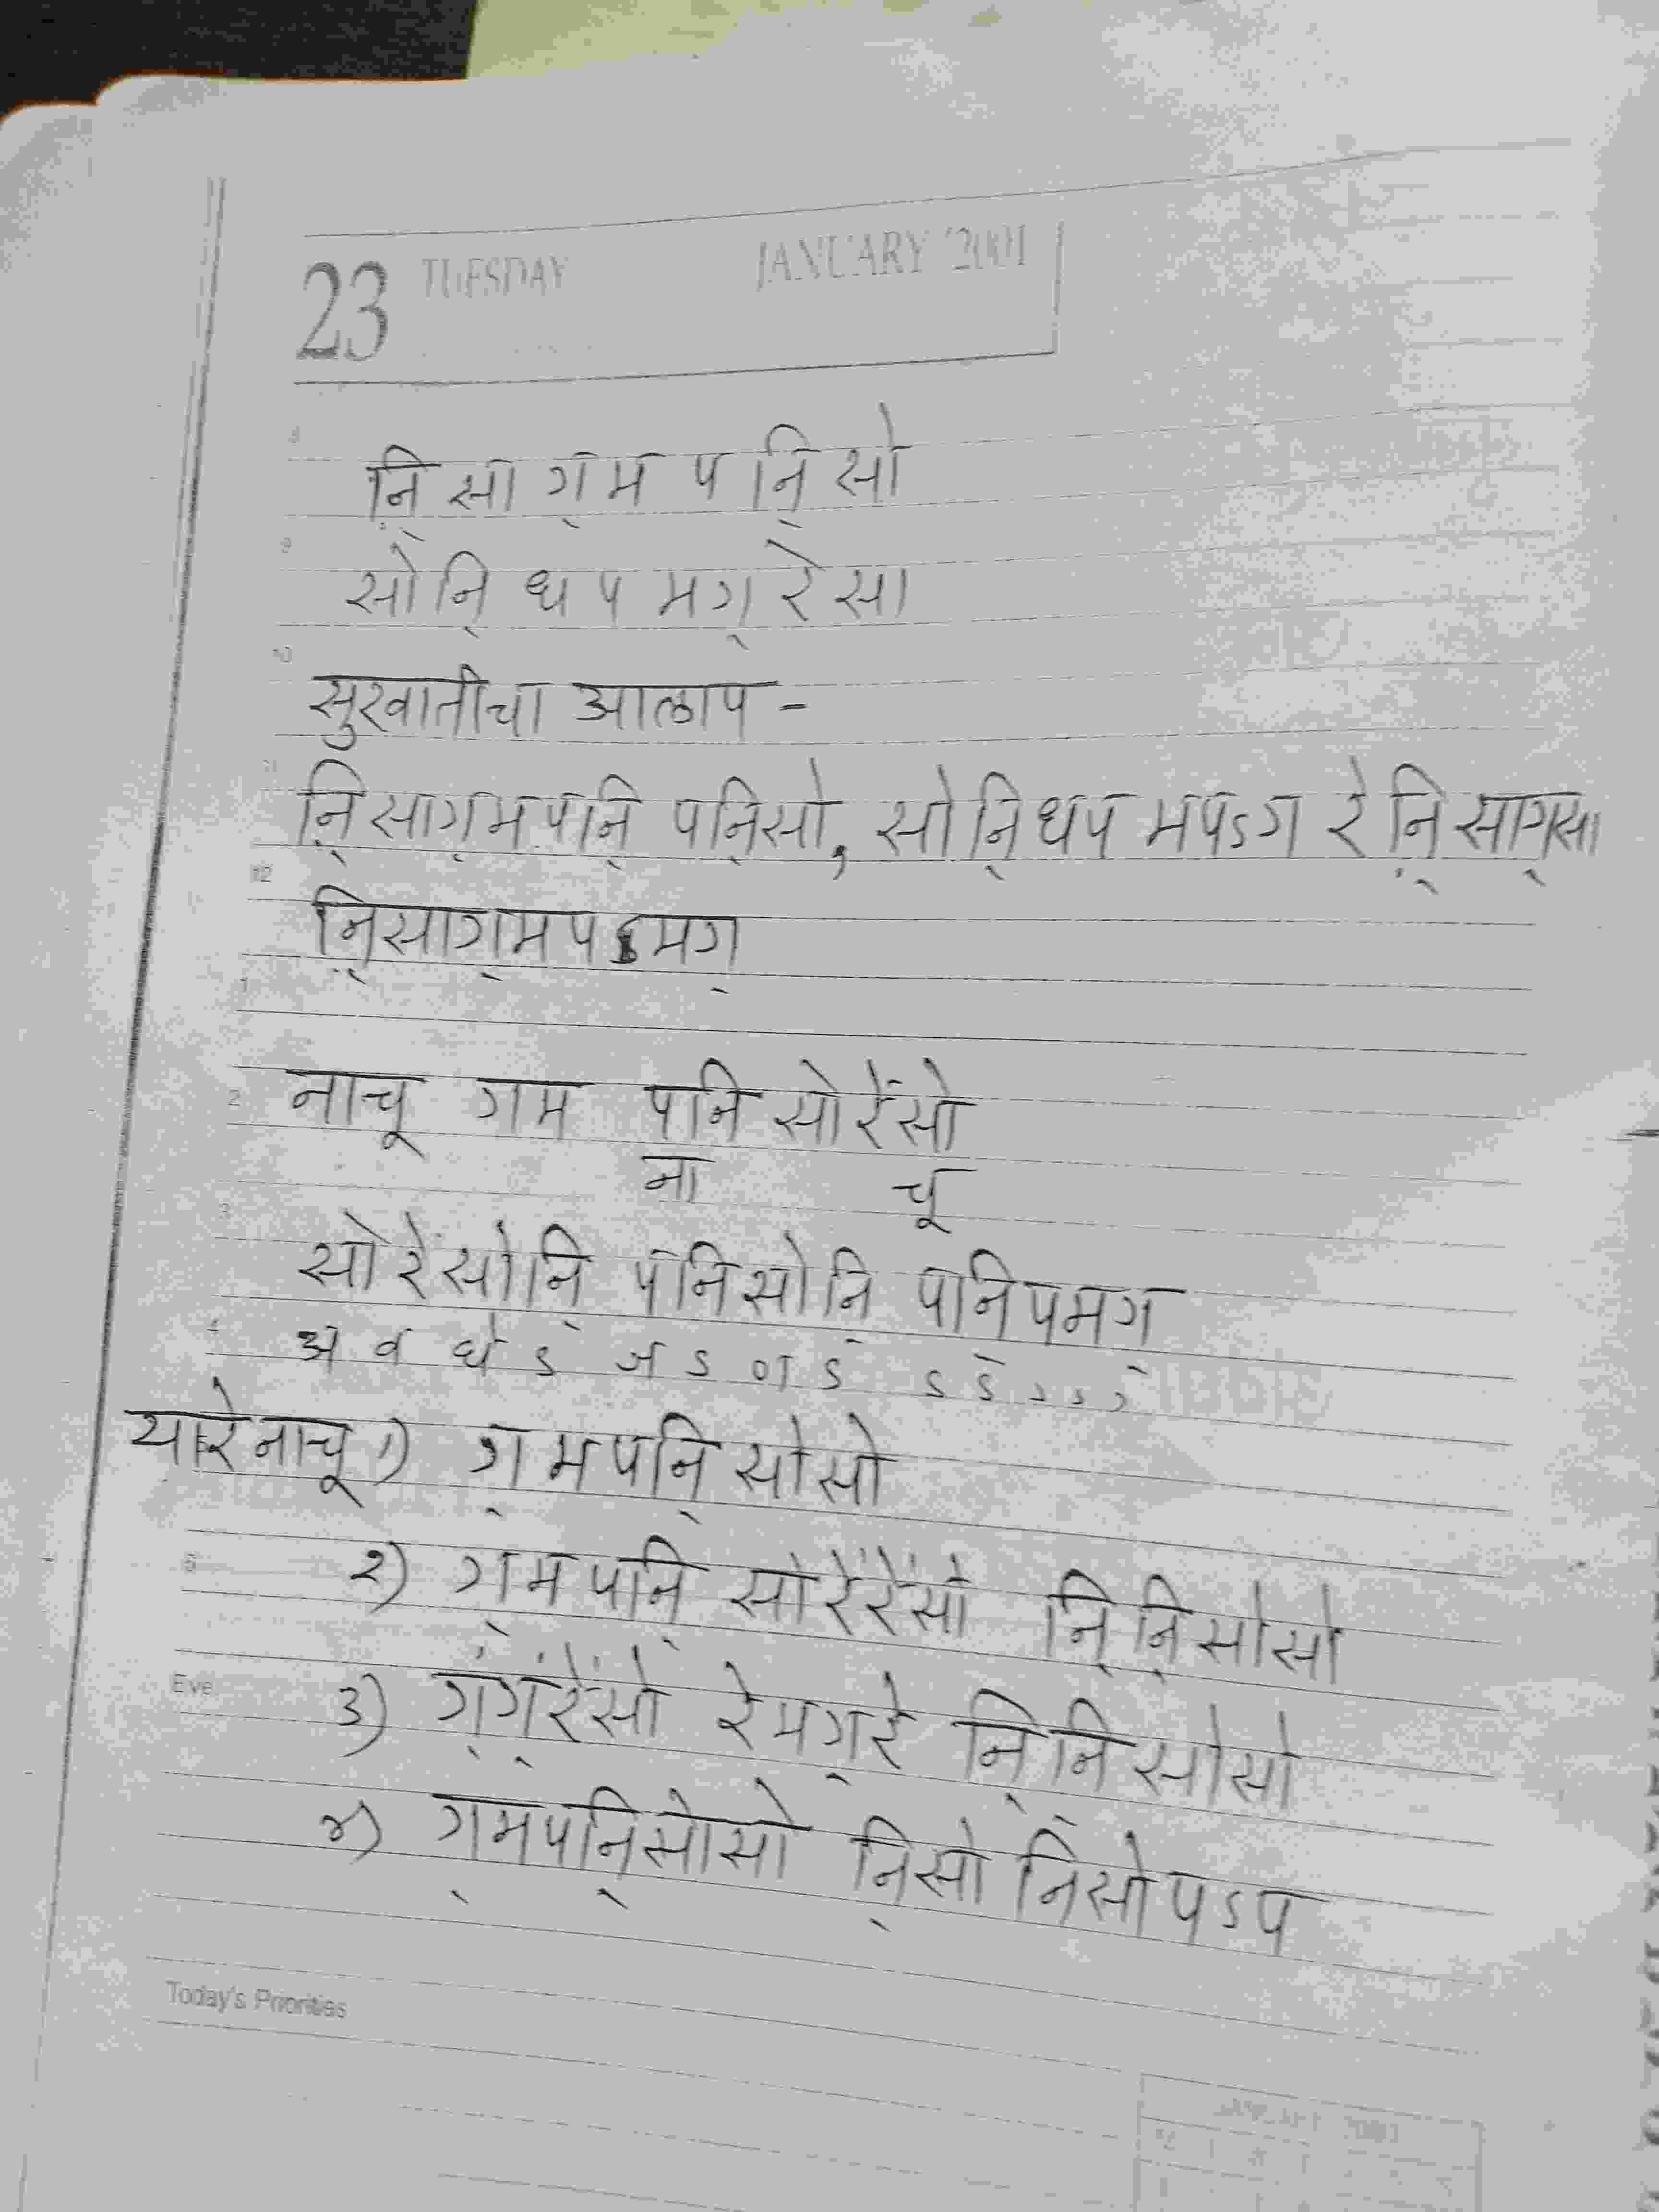 23 TUESDAY JANUARY '2001
8
ऩि॒ सा ग॒ म प नि॒ सां
9
सां नि॒ ध प म ग॒ रे सा
10
सुरवातीचा आलाप -
11
ऩि॒साग॒मपनि॒ पनि॒सां, सांनि॒धप मपऽग रे ऩि॒साग॒सा
12
ऩि॒साग॒मपऽमग॒
1
2 नाचू गम पनि सांरेंसां
ना चू
3
सांरेंसांनि॒ पनिसांनि॒ पनिपमग॒
4 अ व घे ऽ ज ऽ ण ऽ ऽ ऽ ऽ ऽ ऽ
यारेनाचू १) ग॒मपनि॒सांसां
5 २) ग॒मपनि॒ सांरेंरेंसां नि॒नि॒सांसां
Eve ३) ग॒ंग॒ंरेंसां रेमग॒रे नि॒नि॒सांसां
४) ग॒मपनि॒सांसां नि॒सां निसांपऽप
Today's Priorities